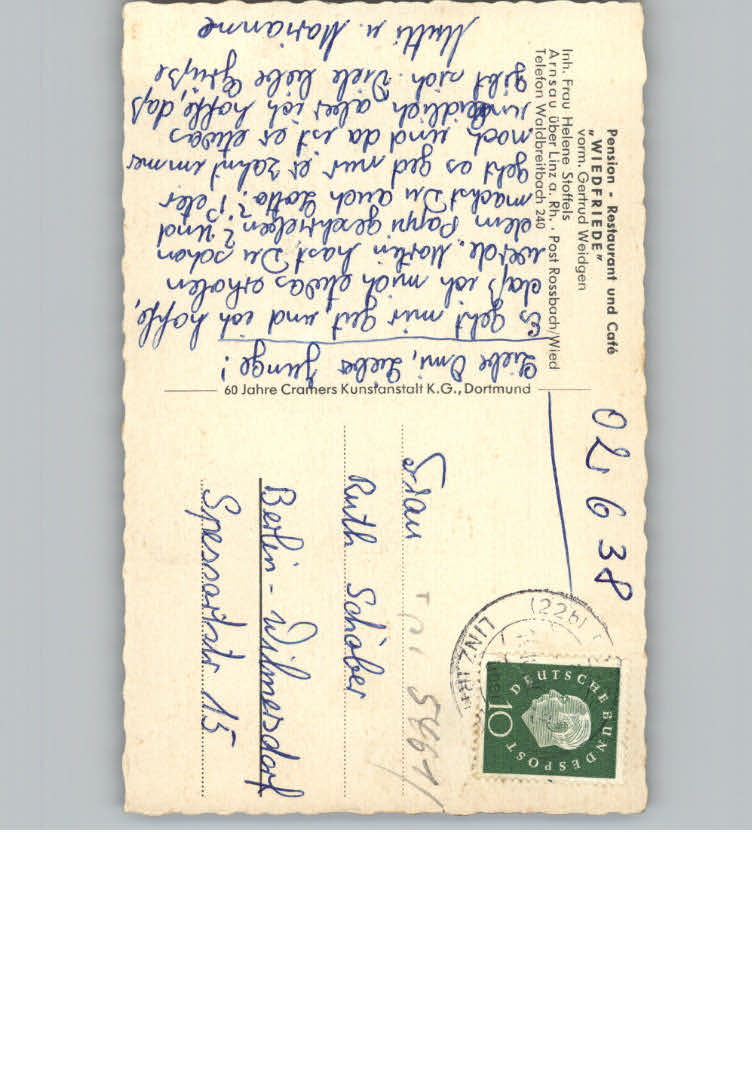 Pension - Restaurant und Café
„WIEDFRIEDE"
vorm. Gertrud Weidgen
Inh. Frau Helene Stoffels
Arnsau über Linz a. Rh. · Post Rossbach/Wied
Telefon Waldbreitbach 240
Liebe Omi, Lieber Junge!
Es geht mir gut und ich hoffe,
daß ich mich etwas erholen
werde. Martin hast Du schon
dem Pappi geschrieben? Und
machst Du auch Lotto? Peter
geht es gut nur er zahnt immer
noch und da ist er etwas
unleidlich aber ich hoffe, daß
gibt sich. Viele liebe Grüße
Mutti u. Marianne
60 Jahre Cramers Kunstanstalt K.G., Dortmund
02638
Frau
Ruth Schober
Berlin-Wilmersdorf
Spessartstr 15
(22b) LINZ (RHEIN)
DEUTSCHE BUNDESPOST
10